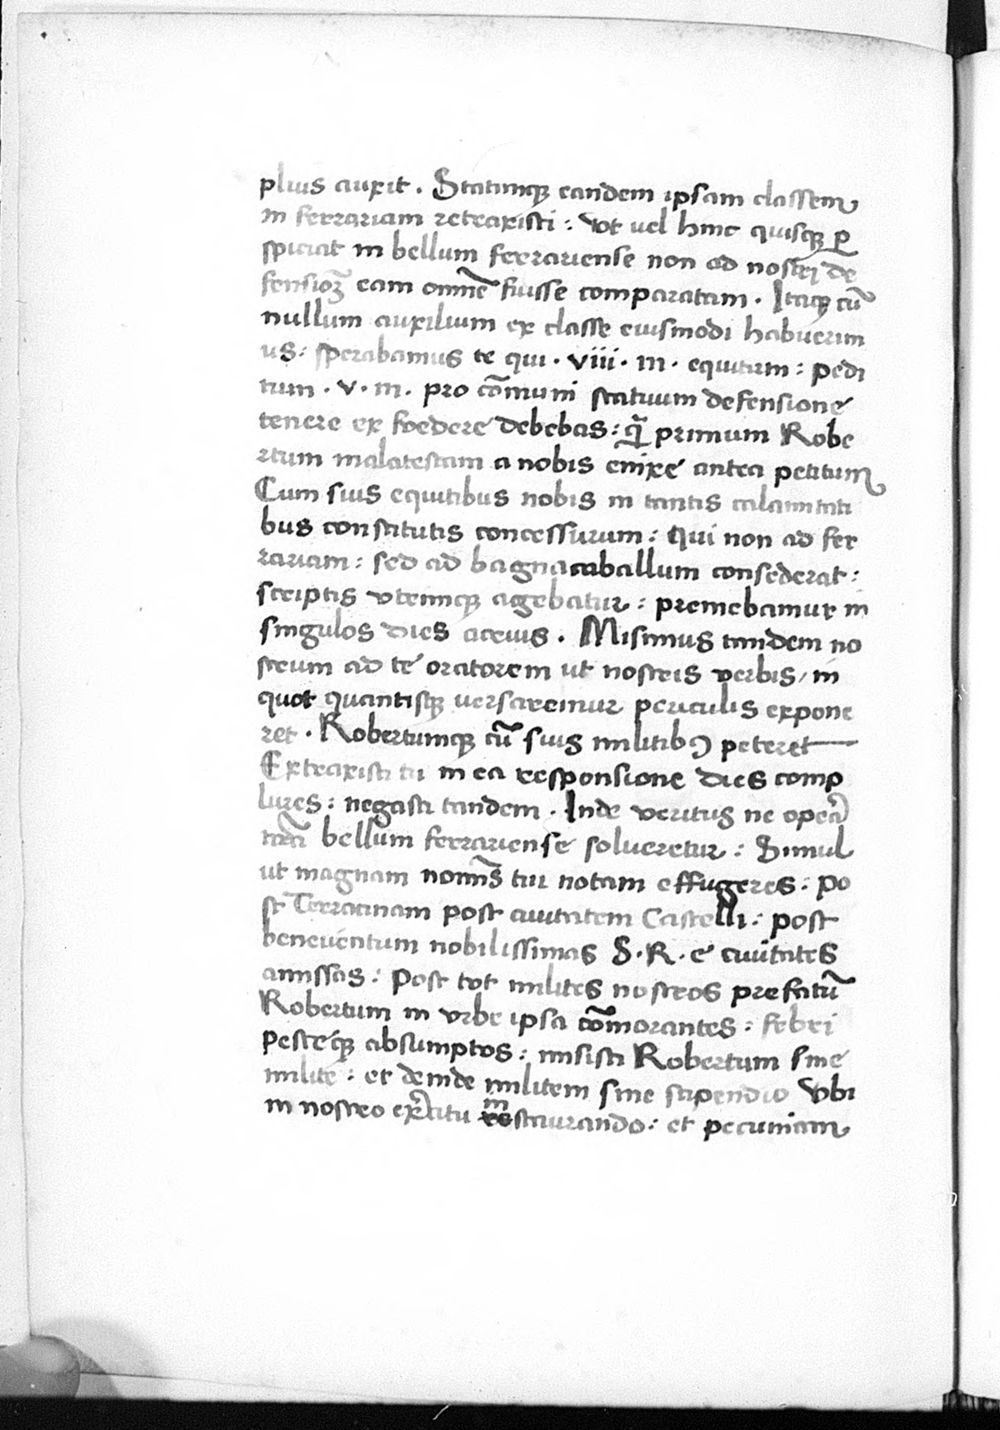 plius auxit. Statimq eandem ipsam classem
in ferrariam retraxisti: Vt vel hinc quisq p
spiciat in bellum ferrariense non ad nostrj de
fensioꝫ eam omnē fuisse comparatam. Itaq cū
nullum auxilium ex classe eiusmodi habuerim
us: sperabamus te qui · viii · m · equitum: pedi
tum · v · m · pro cōmuni statuum defensione
tenere ex foedere debebas: q̄ primum Robe
rtum malatestam a nobis enixe antea petitum
Cum suis equitibus nobis in tantis calamitati
bus constitutis concessurum: Qui non ad fer
rariam: sed ad bagnacaballum consederat:
scriptis vtrimq agebatur: premebamur in
singulos dies acrius. Misimus tandem no
strum ad te oratorem ut nostris verbis, in
quot quantisq versaremur periculis expone
ret. Robertumq cū suis militibꝰ peteret
Extraxisti tu in ea responsione dies comp
lures: negasti tandem. Inde veritus ne operā
bellum ferrariense solueretur: Simul
ut magnam nomīs tui notam effugeres: po
st Terracinam post ciuitatem Castelli: post
beneventum nobilissimas S. R. e ciuitates
amissas: Post tot milites nostros prefatū
Robertum in vrbe ipsa cōmorantes: febri
pesteq absumptos: misisti Robertum sine
milite: et deinde militem sine stipendio Vbi
in nostro ex̄citu restaurando: et pecuniam